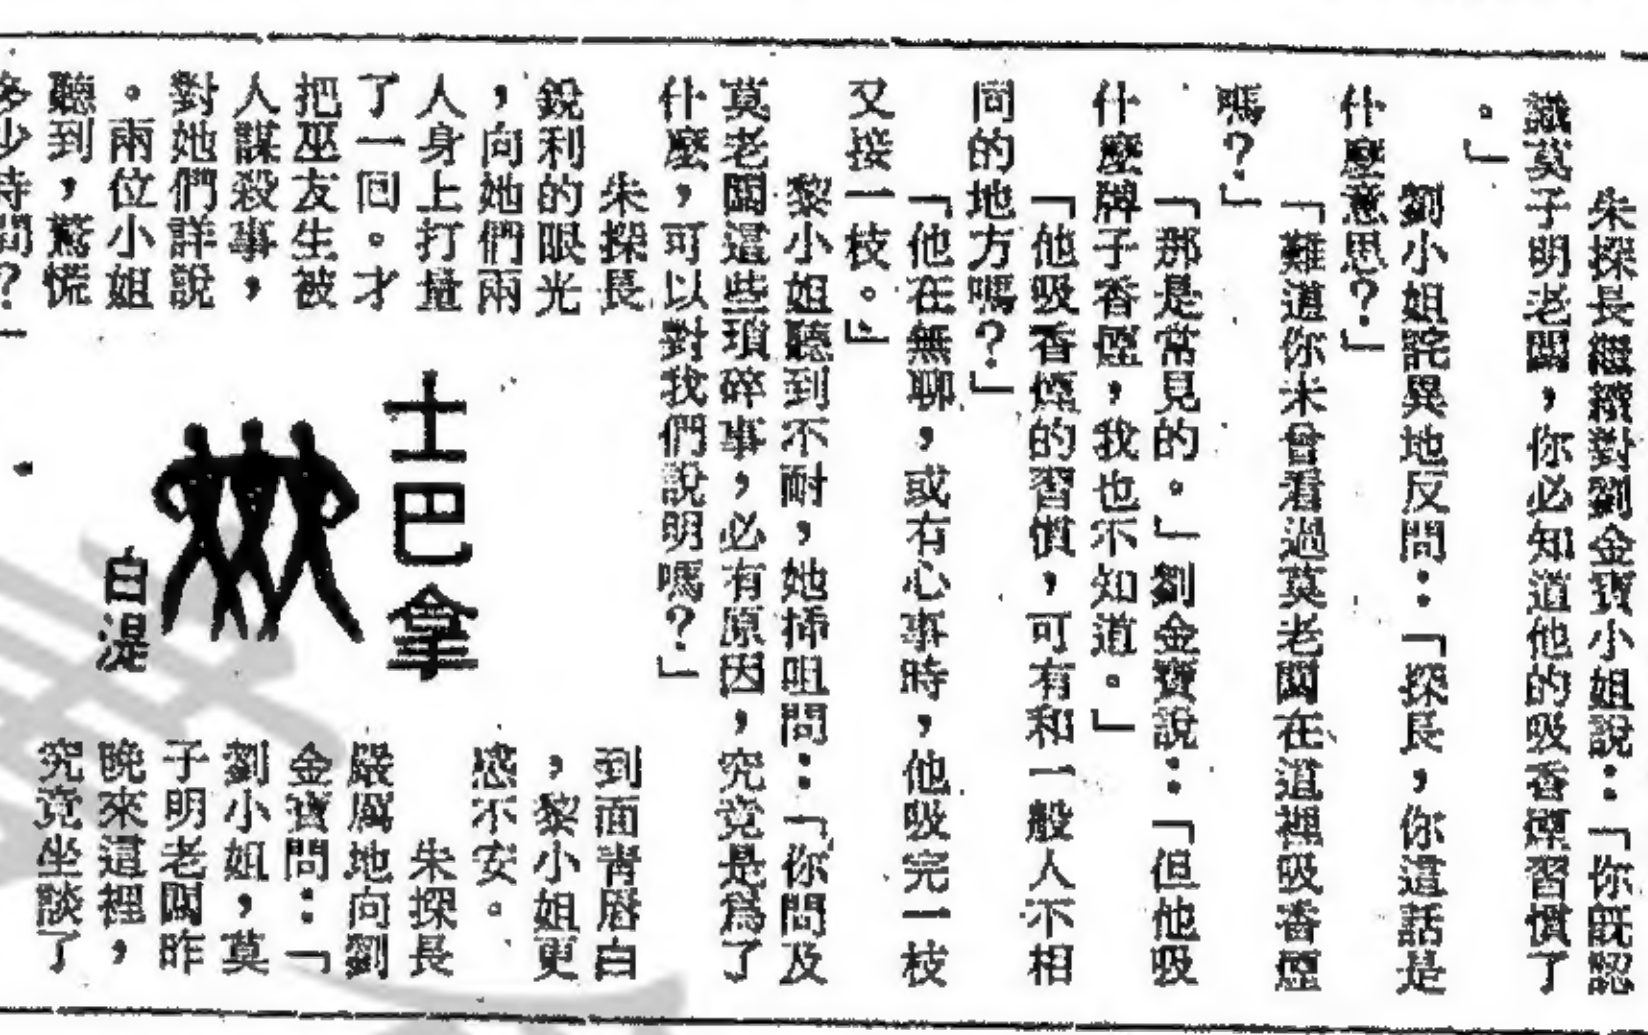 朱探長繼續對劉金寶小姐說：「你既認
識莫子明老闆，你必知道他的吸香煙習慣了
。」
劉小姐詫異地反問：「探長，你這話是
什麼意思？」
「難道你未曾看過莫老闆在這裡吸香煙
嗎？」
「那是常見的。」劉金寶說：「但他吸
什麼牌子香煙，我也不知道。」
「他吸香煙的習慣，可有和一般人不相
同的地方嗎？」
「他在無聊，或有心事時，他吸完一枝
又接一枝。」
黎小姐聽到不耐，她插咀問：「你問及
莫老闆這些瑣碎事，必有原因，究竟是爲了
什麼，可以對我們說明嗎？」
朱探長
銳利的眼光
，向她們兩
人身上打量
了一回。才
把巫友生被
人謀殺事，
對她們詳說
。兩位小姐
聽到，驚慌
士巴拿
白湜
到面青唇白
，黎小姐更
感不安。
朱探長
嚴厲地向劉
金寶問：「
劉小姐，莫
子明老闆昨
晚來這裡，
究竟坐談了
多少時間？」